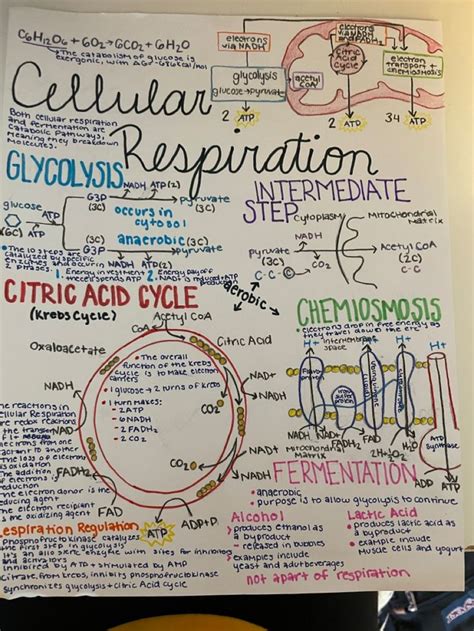 C6H12O6 + 6O2 → 6CO2 + 6H2O
• The catabolism of glucose is
exergonic, with a ΔG of
electrons
via NADH
electrons
via NADH
and FADH2
glycolysis
glucose → pyruvate
acetyl
CoA
Citric
Acid
cycle
electron
transport +
chemiosmosis
2 ATP
2 ATP
34 ATP
Cellular
Respiration
Both cellular respiration
and fermentation are
Catabolic Pathways,
Meaning they breakdown
Molecules.
GLYCOLYSIS
NADH ATP(2)
G3P
(3C)
pyruvate
(3C)
glucose
(6C)
ATP
ATP
occurs in
cytosol
anaerobic
G3P
(3C)
(3C)
pyruvate
NADH ATP(2)
• The 10 steps are
catalyzed by specific
enzymes and occur in
2 phases.
1 Energy investment
cell spends ATP
2 Energy payoff
NAD+ is reduced + ATP
aerobic
INTERMEDIATE
STEP
Cytoplasm
Mitochondrial
Matrix
NADH
Pyruvate
(3C)
C-C-C
CO2
Acetyl CoA
(2C)
C-C
CITRIC ACID CYCLE
(Krebs Cycle)
Acetyl CoA
CoA
Oxaloacetate
Citric Acid
• The overall
function of the Krebs
Cycle is to make electron
carriers
• 1 glucose → 2 turns of krebs
• 1 turn makes:
- 2 ATP
- 6 NADH
- 2 FADH2
- 2 CO2
NADH
NAD+
NADH
CO2
NAD+
NADH
CO2
NAD+
FADH2
FAD
ATP
ADP+P
he reactions in
ellular Respiration
are redox reactions
electrons from one
reactant to another
he loss of electrons
s oxidation
The addition
f electrons is
reduction
he electron donor is the
educing agent
he electron recipient
s the oxidizing agent
CHEMIOSMOSIS
• electrons drop in free energy as
they travel down the
H+
Intermembrane
space
H+
H+
H+
NADH
NAD+
Mitochondrial
Matrix
FADH2
FAD
H2O
ATP
Synthase
ADP
ATP
FERMENTATION
• anaerobic
• purpose is to allow glycolysis to continue
Alcohol
• produces ethanol as
a byproduct
• released in bubbles
• examples include
yeast and
beverages
Lactic Acid
• produces lactic acid as
a byproduct
• example include
Muscle cells and yogurt
not apart of respiration
Respiration Regulation
Phosphofructokinase catalyzes
the first step in glycolysis
It's an allosteric enzyme with sites for inhibitors
and activators
inhibited by ATP + stimulated by AMP
Citrate, from Krebs, inhibits phosphofructokinase
synchronizes glycolysis + Citric Acid Cycle